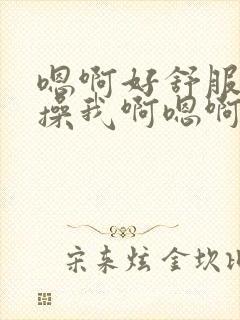 嗯啊好舒服
操我啊嗯啊
宋来炫 金坎比